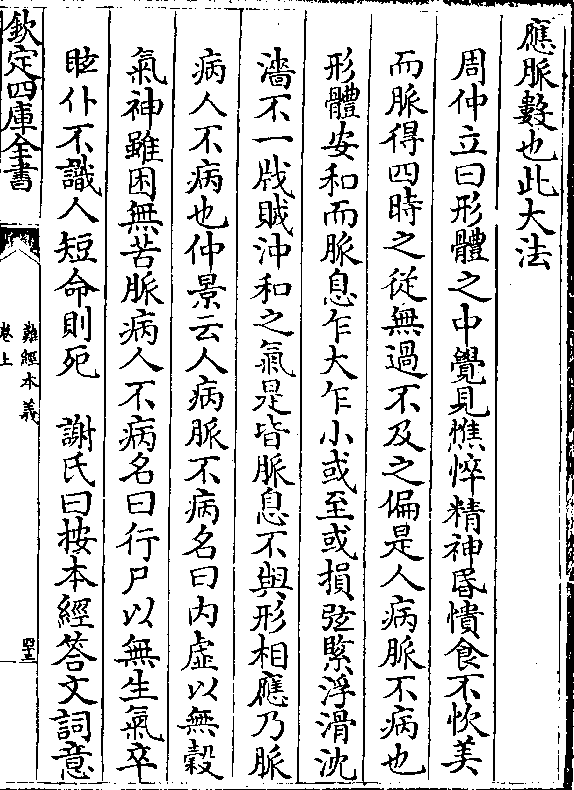 應脈數也此大法
周仲立曰形體之中覺見憔悴精神昏憒食不忺美
而脈得四時之從無過不及之偏是人病脈不病也
形體安和而脈息乍大乍小或至或損弦緊浮滑沈
濇不一戕賊沖和之氣是皆脈息不與形相應乃脈
病人不病也仲景云人病脈不病名曰内虛以無穀
氣神雖困無苦脈病人不病名曰行尸以無生氣卒
眩仆不識人短命則死　謝氏曰按本經答文詞意
欽定四庫全書
難經本義
卷上
四十三